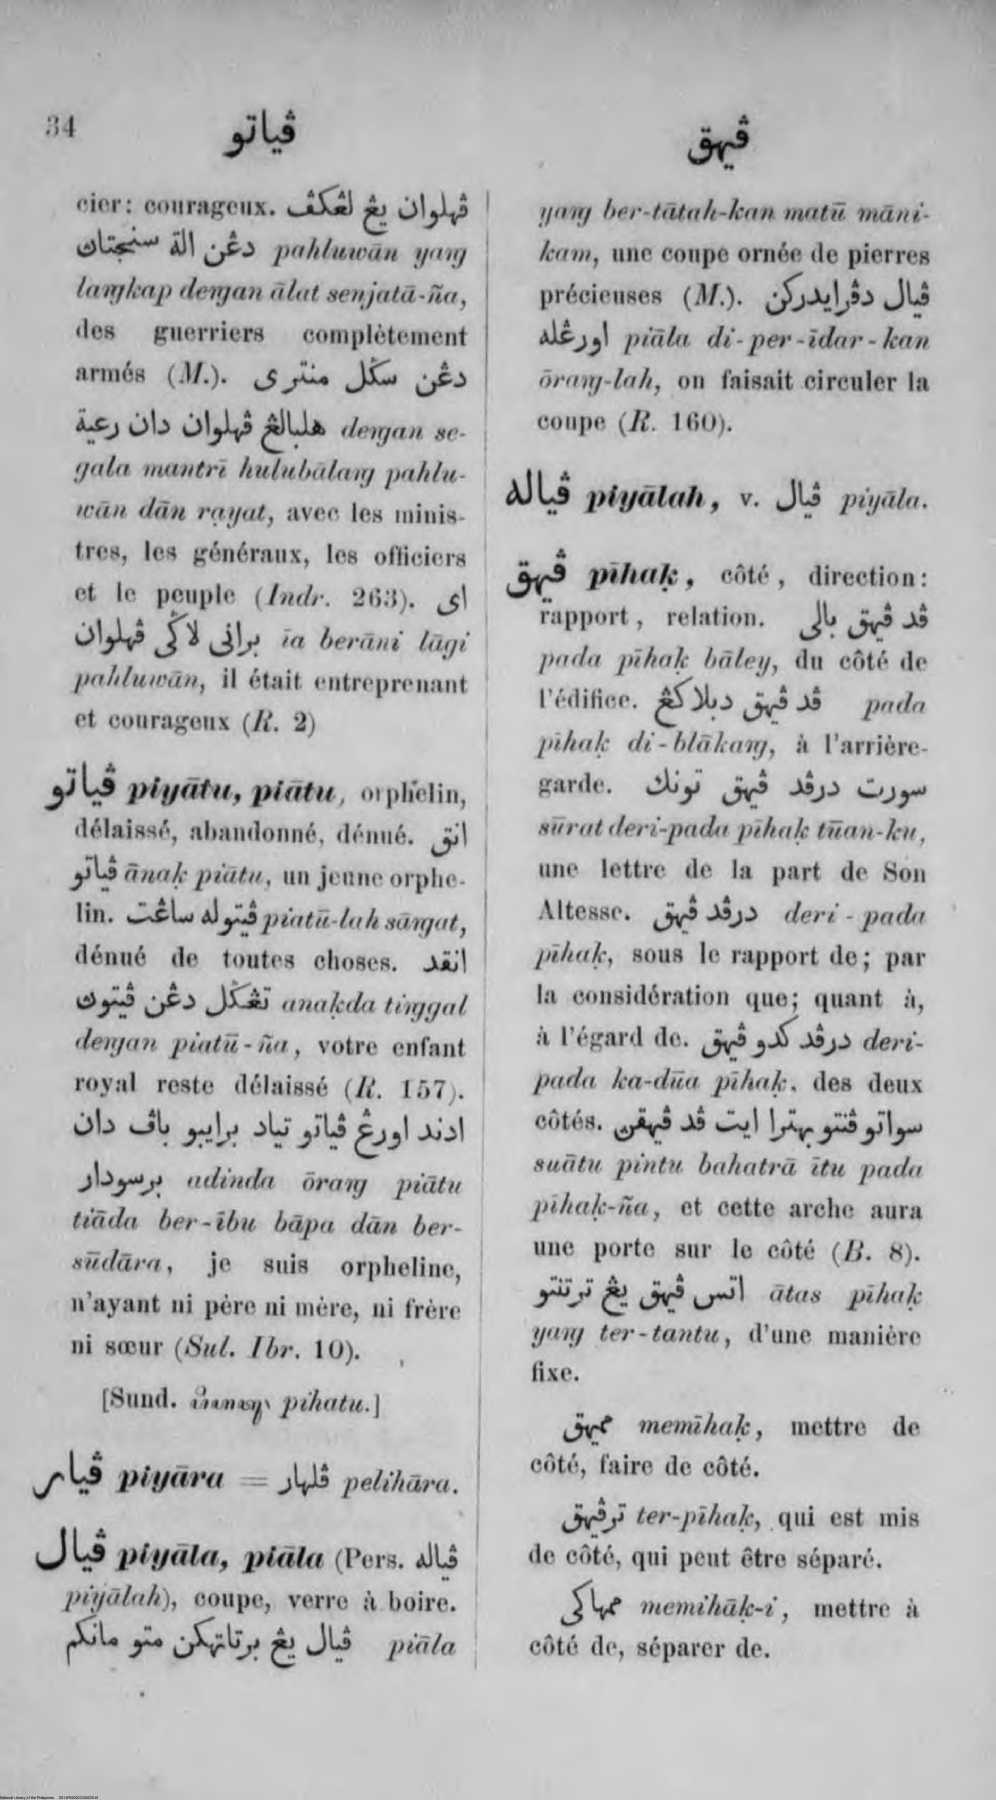 34
ڤياتو
ڤيهق
cier: courageux. ڤهلوان يڠ لڠكڤ
دڠن الة سنجتاڽ pahluwān yaŋ
laŋkap deŋan ālat senjatā-ña,
des guerriers complètement
armés (M.). دڠن سݢل منتري
هلبالڠ ڤهلوان دان رعية deŋan se-
gala mantrī hulubālaŋ pahlu-
wān dān rayat, avec les minis-
tres, les généraux, les officiers
et le peuple (Indr. 263). اي
براني لاݢي ڤهلوان īa berāni lāgi
pahluwān, il était entreprenant
et courageux (R. 2)
ڤياتو piyātu, piātu, orphelin,
délaissé, abandonné, dénué. انق
ڤياتو ānaḳ piātu, un jeune orphe-
lin. ڤيتوله ساڠت piatū-lah sāŋgat,
dénué de toutes choses. انقد
تڠݢل دڠن ڤيتوڽ anaḳda tiŋgal
deŋan piatū-ña, votre enfant
royal reste délaissé (R. 157).
ادند اورڠ ڤياتو تياد برايبو باڤ دان
برسودار adinda ōraŋ piātu
tiāda ber-ību bāpa dān ber-
sūdāra, je suis orpheline,
n'ayant ni père ni mère, ni frère
ni sœur (Sul. Ibr. 10).
[Sund. pihatu.]
ڤيار piyāra = ڤلهار pelihāra.
ڤيال piyāla, piāla (Pers. ڤياله
piyālah), coupe, verre à boire.
ڤيال يڠ برتاتهكن متو مانكم piāla
yaŋ ber-tātah-kan matū māni-
kam, une coupe ornée de pierres
précieuses (M.). ڤيال دڤرايدركن
اورڠله piāla di-per-īdar-kan
ōraŋ-lah, on faisait circuler la
coupe (R. 160).
ڤياله piyālah, v. ڤيال piyāla.
ڤيهق pīhaḳ, côté, direction:
rapport, relation. ڤد ڤيهق بالي
pada pīhaḳ bāley, du côté de
l'édifice. ڤد ڤيهق دبلاكڠ pada
pīhaḳ di-blākaŋ, à l'arrière-
garde. سورت درڤد ڤيهق تونك
sūrat deri-pada pīhaḳ tūan-ku,
une lettre de la part de Son
Altesse. درڤد ڤيهق deri-pada
pīhaḳ, sous le rapport de; par
la considération que; quant à,
à l'égard de. درڤد كدو ڤيهق deri-
pada ka-dūa pīhaḳ, des deux
côtés. سواتو ڤنتو بهترا ايت ڤد ڤيهقڽ
suātu pintu bahatrā ītu pada
pīhaḳ-ña, et cette arche aura
une porte sur le côté (B. 8).
اتس ڤيهق يڠ ترتنتو ātas pīhaḳ
yaŋ ter-tantu, d'une manière
fixe.
مميهق memīhaḳ, mettre de
côté, faire de côté.
ترڤيهق ter-pīhaḳ, qui est mis
de côté, qui peut être séparé.
ممهاكي memihāḳ-i, mettre à
côté de, séparer de.